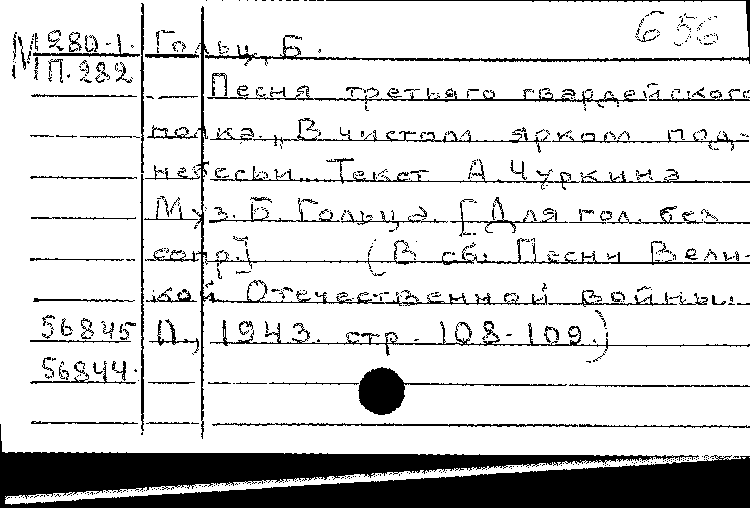 656
М 280-1. Гольц, Б.
П. 282
Песня третьяго гвардейского
полка. „В чистом ярком под-
небесьи... Текст А. Чуркина
Муз. Б. Гольца. [Для гол. без
сопр.] (В сб. Песни Вели-
кой Отечественной войны.
56845 Л., 1943. стр. 108-109.)
56844.